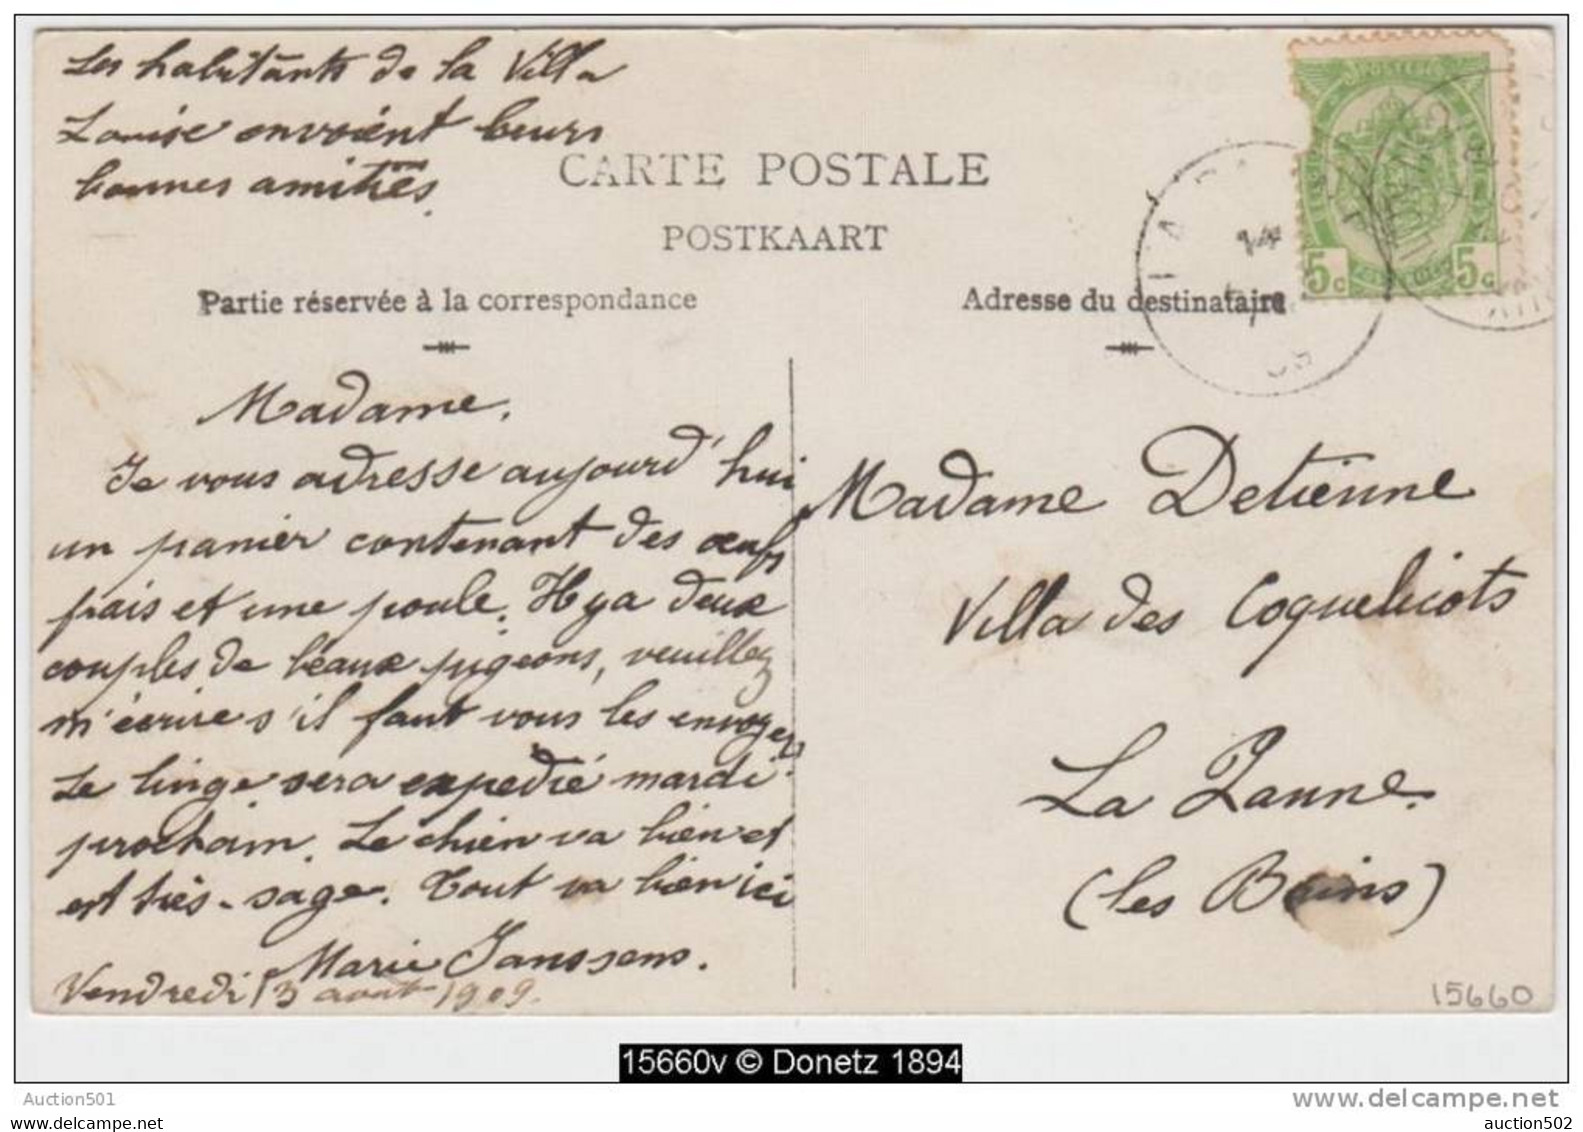 Les habitants de la Villa
Louise envoient leurs
bonnes amitiés.
CARTE POSTALE
POSTKAART
Partie réservée à la correspondance
Adresse du destinataire
5c 5c
14
09
Madame.
Je vous adresse aujourd'hui
un panier contenant des œufs
frais et une poule. Il y a deux
couples de beaux pigeons, veuillez
m'écrire s'il faut vous les envoyer.
Le linge sera expedié mardi
prochain. Le chien va bien et
est très-sage. Tout va bien ici
Marie Janssens.
Vendredi 13 août 1909.
Madame Detienne
Villa des Coquelicots
La Panne.
(les Bains)
15660
15660v © Donetz 1894
Auction501
www.delcampe.net
auction502
auction502